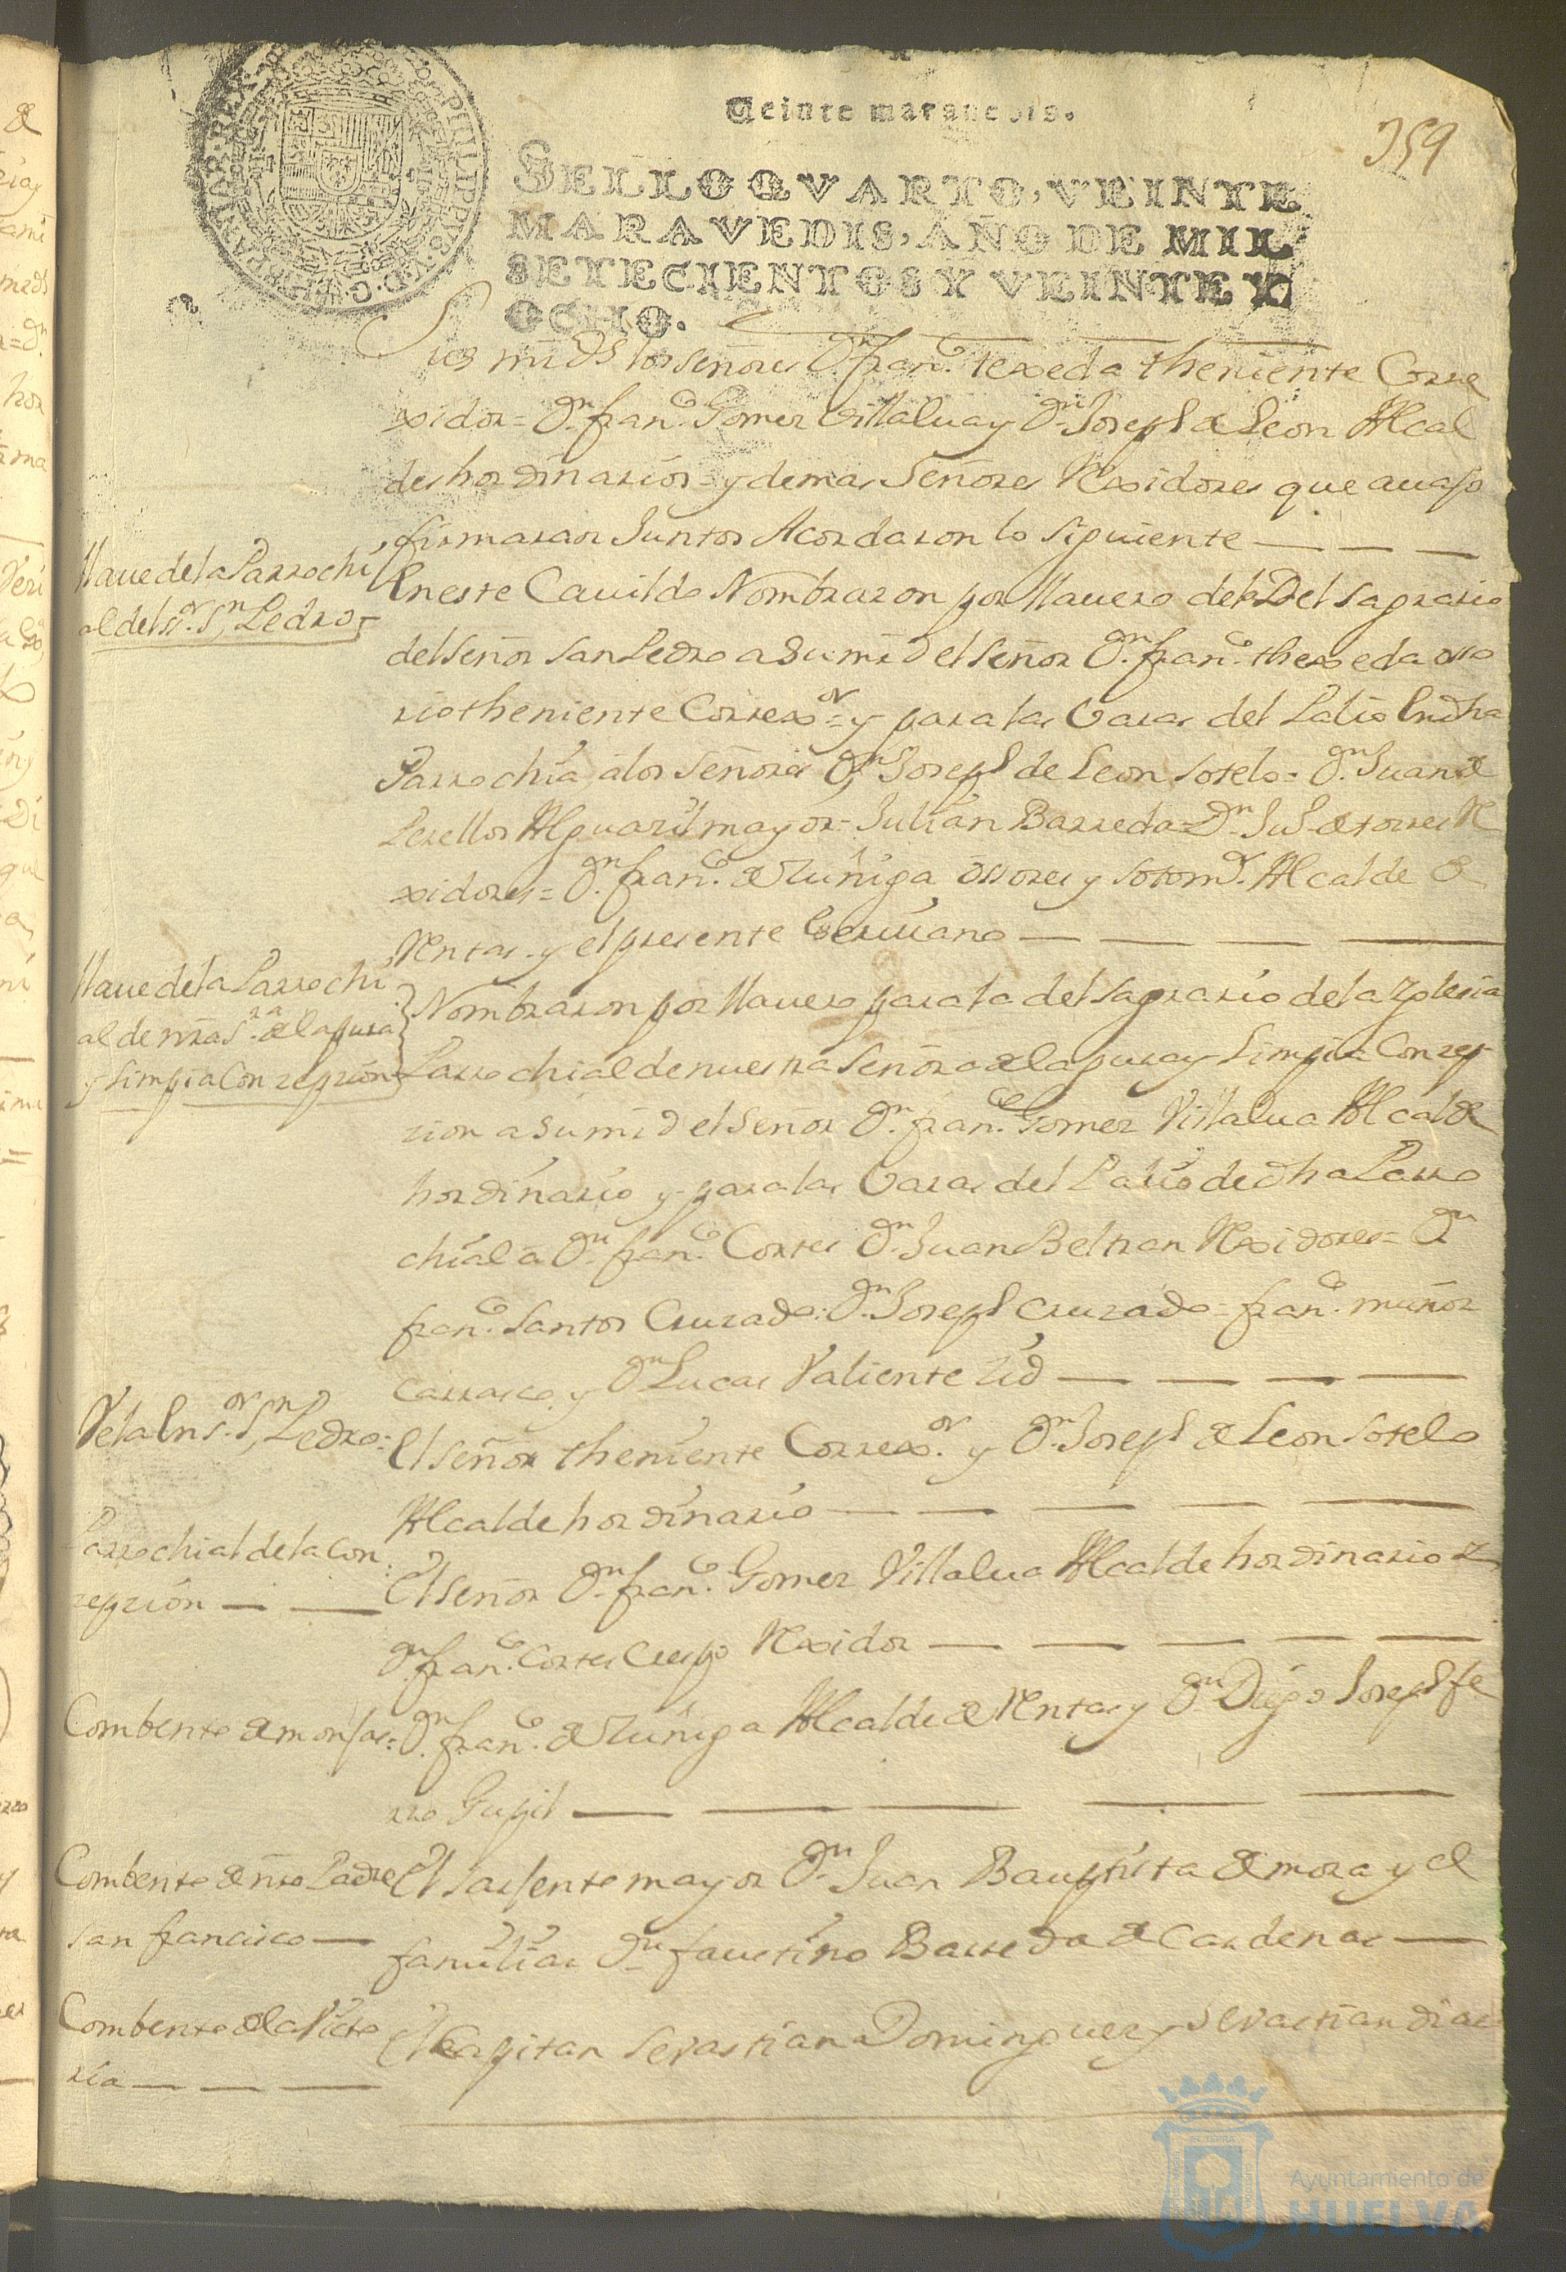 Veinte maravedis.
359
SELLO QVARTO, VEINTE
MARAVEDIS, AÑO DE MIL
SETECIENTOS Y VEINTE Y
OCHO.
PHILIPPVS V D G HISPANIAR REX
sus mrds los señores Dn. franco. texeda theniente Corre
xidor = Dn. franco. Gomez Villalua y Dn. Joseph de Leon Alcal
des hordinarios = y demas Señores Rexidores que auajo
firmaran Juntos Acordaron lo siguiente
llaue de la Parrochi
al del sr. Sn. Pedro =
En este Cauildo Nombraron por llauero del Sagrario
del señor san Pedro a su mrd el señor Dn. franco. thexeda
rio theniente Correxor. = y para las Varas del Palio En dha
Parrochia, a los señores Dn. Joseph de Leon sotelo = Dn. Juan de
Perellos Alguazil mayor = Julian Barreda = Dn. de torres Re
xidores = Dn. franco. de Zuñiga ossores y sotomr. Alcalde de
Rentas y el presente Escriuano
llaue de la Parrochi
al de nra Sra. de la pura
y limpia Conzepzion
Nombraron por llauero para la del sagrario de la Yglesia
Parrochial de nuestra señora de la pura y limpia Conzep
zion a su mrd el señor Dn. franco. Gomez Villalua Alcalde
hordinario y para las Varas del Palio de dha Parro
chial a Dn. franco. Cortes Dn. Juan Beltran Rexidores = Dn.
franco. santos Cruzado = Dn. Joseph cruzado = franco. muñoz
carrasco y Dn. Lucas Valiente Zid
Vela En sr. Sn. Pedro =
El señor theniente Correxor. y Dn. Joseph de Leon sotelo
Alcalde hordinario
Parrochial de la Con
zepzion
El señor Dn. franco. Gomez Villalua Alcalde hordinario
Dn. franco. Cortes Crespo Rexidor
Combento de monjas =
Dn. franco. de Zuñiga Alcalde de Rentas y Dn. Diego Joseph fe
rro
Combento de nro Padre
san francisco
El sarjento mayor Dn. Juan Bauptista de mora y el
familiar Dn. faustino Barreda de Cardenas
Combento de la Victo
ria
El Capitan sevastian Dominguez y sevastian dias
Ayuntamiento de
HUELVA